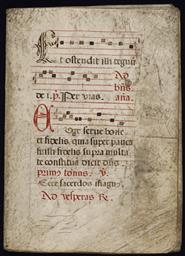 Et ostendit illi regnū
Ad
bñs.
de i. p. Per vias. aña.
A
Uge serve bone
et fidelis quia super pauca
fuisti fidelis supra multa
te constituā dicit dñs.
primus tonus. v.
Ecce sacerdos magn⁹.
Ad vesperas